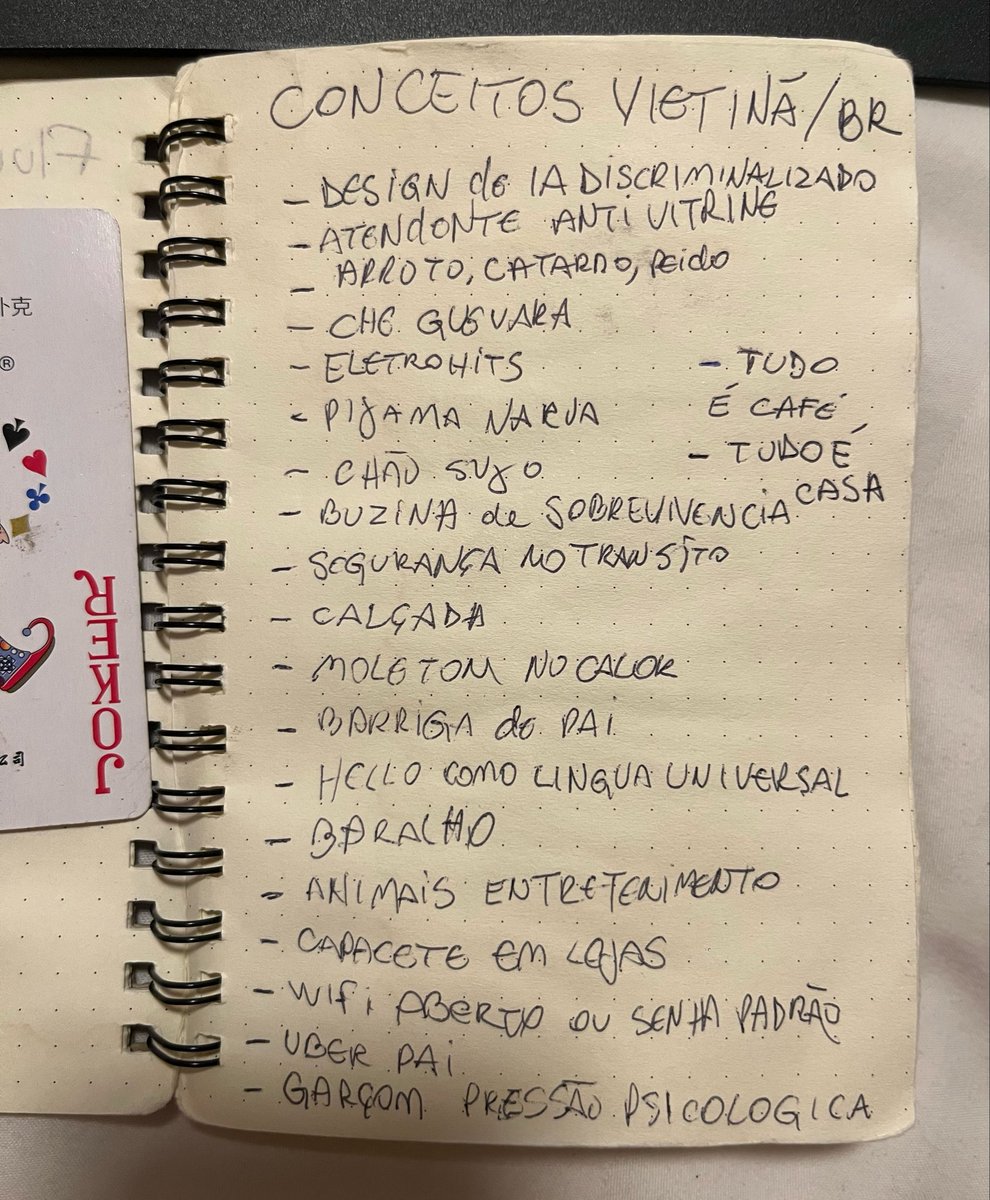 CONCEITOS VIETINÃ/BR
- DESIGN de IA DISCRIMINALIZADO
- ATENDONTE ANTI VITRINE
- ARROTO, CATARDO, PEIDO
- CHE GUEVARA
- ELETROHITS
- PIJAMA NA RUA
- CHÃO SUJO
- BUZINA de SOBREVIVENCIA
- SEGURANÇA NO TRANSÍTO
- CALÇADA
- MOLETOM NO CALOR
- BARRIGA do PAI
- HELLO COMO LINGUA UNIVERSAL
- BARALHO
- ANIMAIS ENTRETENIMENTO
- CAPACETE EM LOJAS
- WIFI ABERTO OU SENHA PADRÃO
- UBER PAI
- GARÇOM PRESSÃO PSICOLOGICA
- TUDO
É CAFÉ
- TUDO É
CASA
扑克
®
JOKER
公司